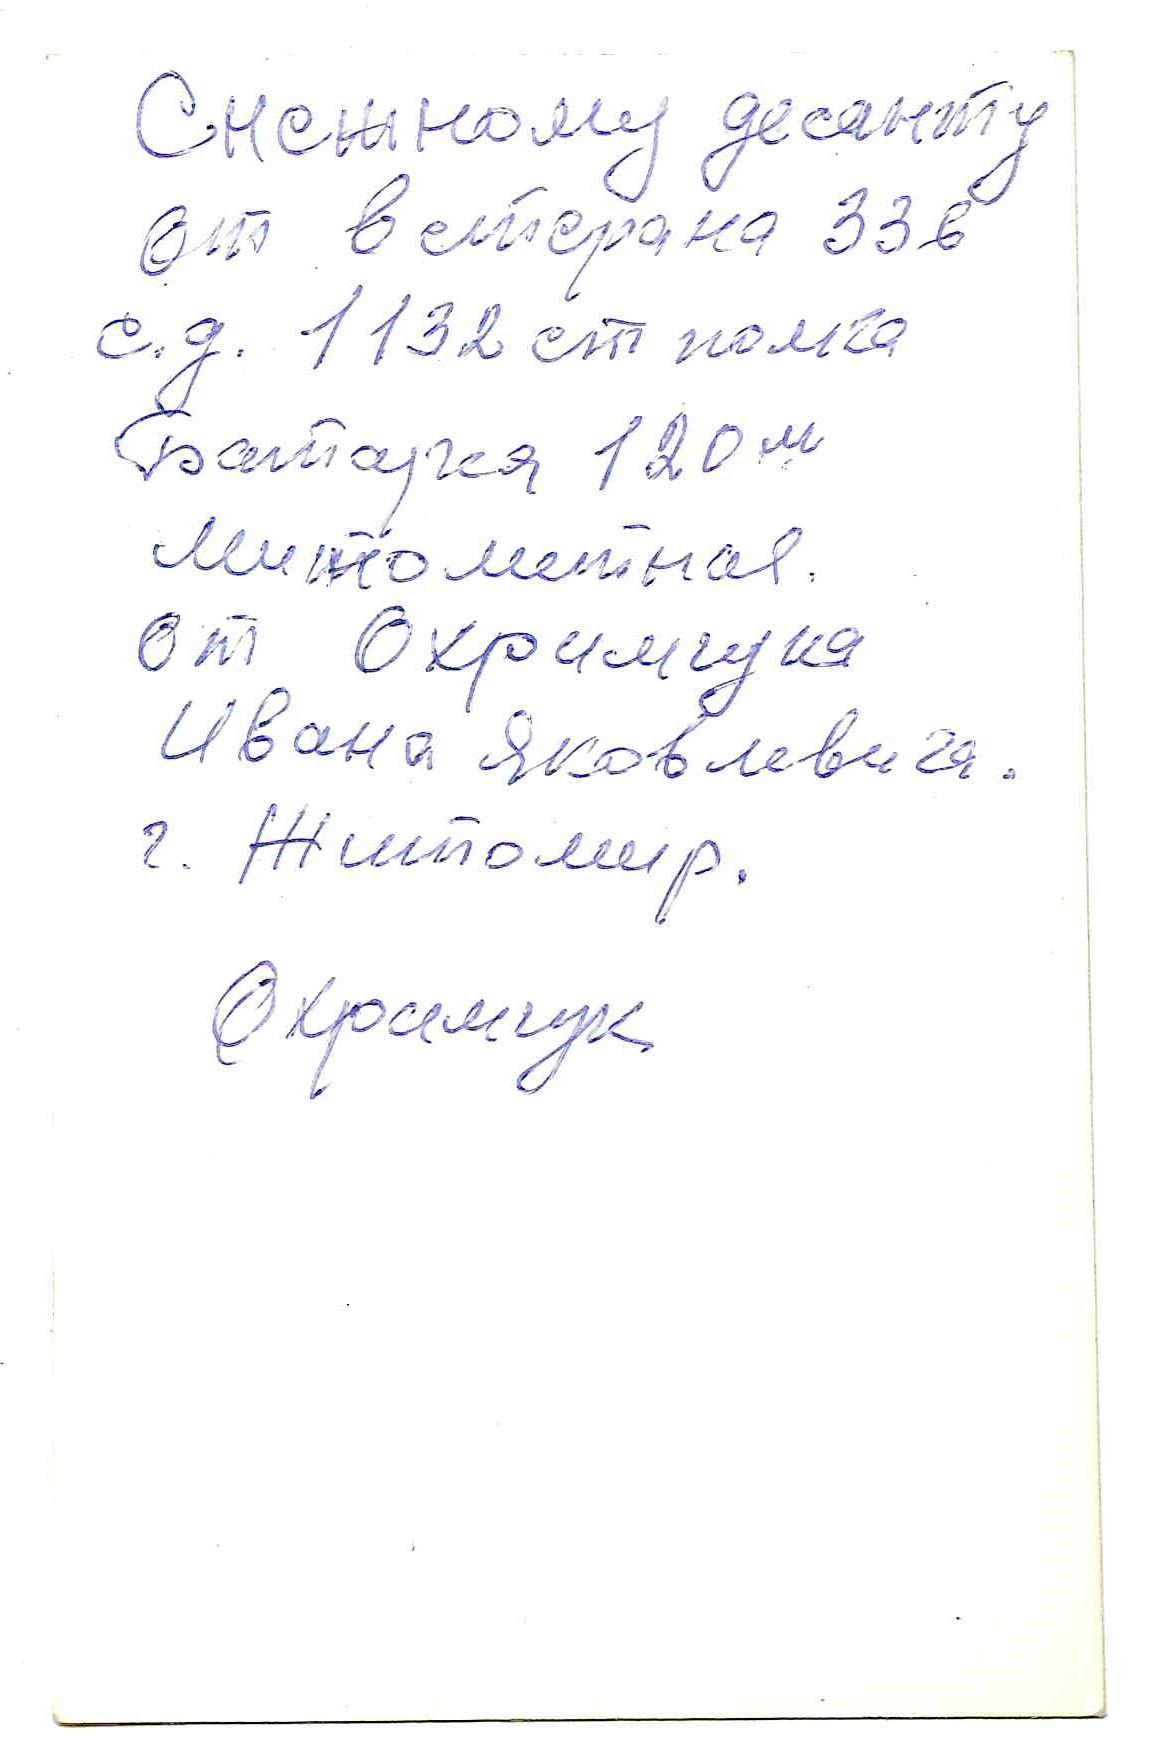 Снежному десанту
от ветерана 336
с.д. 1132 ст полка
Батарея 120 м
Минометная.
от Охримчука
Ивана Яковлевича.
г. Житомир.
Охримчук